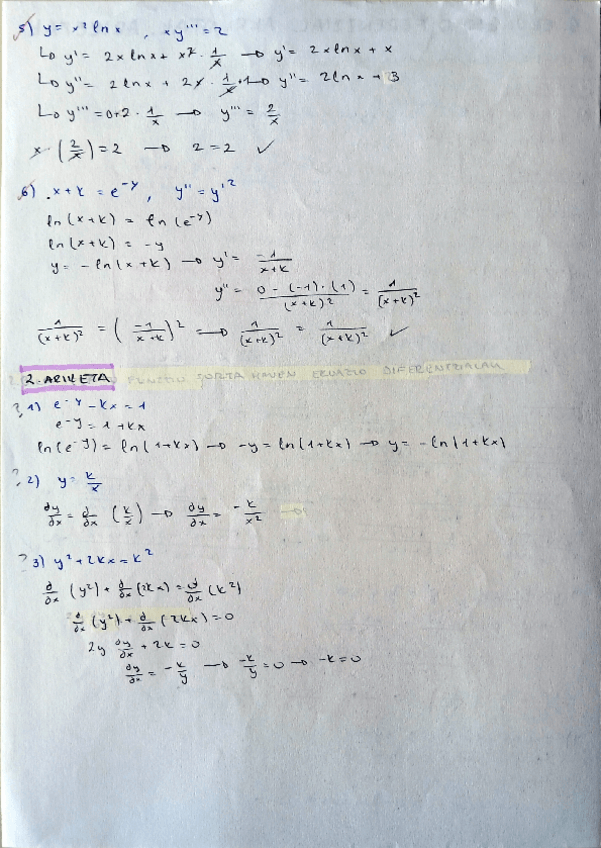 5) y = x² ln x , x y''' = 2
↳ y' = 2x ln x + x² · 1/x → y' = 2x ln x + x
↳ y'' = 2 ln x + 2x · 1/x + 1 → y'' = 2 ln x + 3
↳ y''' = 0 + 2 · 1/x → y''' = 2/x
x · (2/x) = 2 → 2 = 2 ✓
6) x + k = e^-y , y'' = y'²
ln (x+k) = ln (e^-y)
ln (x+k) = -y
y = - ln (x+k) → y' = -1/(x+k)
y'' = (0 - (-1) · (1))/(x+k)² = 1/(x+k)²
1/(x+k)² = (-1/(x+k))² → 1/(x+k)² = 1/(x+k)² ✓
2. ARIKETA FUNTZIO SORTA HAUEN EKUAZIO DIFERENTZIALAK
? 1) e^-y - kx = 1
e^-y = 1 + kx
ln (e^-y) = ln (1+kx) → -y = ln (1+kx) → y = - ln (1+kx)
? 2) y = k/x
∂y/∂x = ∂/∂x (k/x) → ∂y/∂x = -k/x² →
? 3) y² + 2kx = k²
∂/∂x (y²) + ∂/∂x (2kx) = ∂/∂x (k²)
∂/∂x (y²) + ∂/∂x (2kx) = 0
2y ∂y/∂x + 2k = 0
∂y/∂x = -k/y → -k/y = 0 → -k = 0